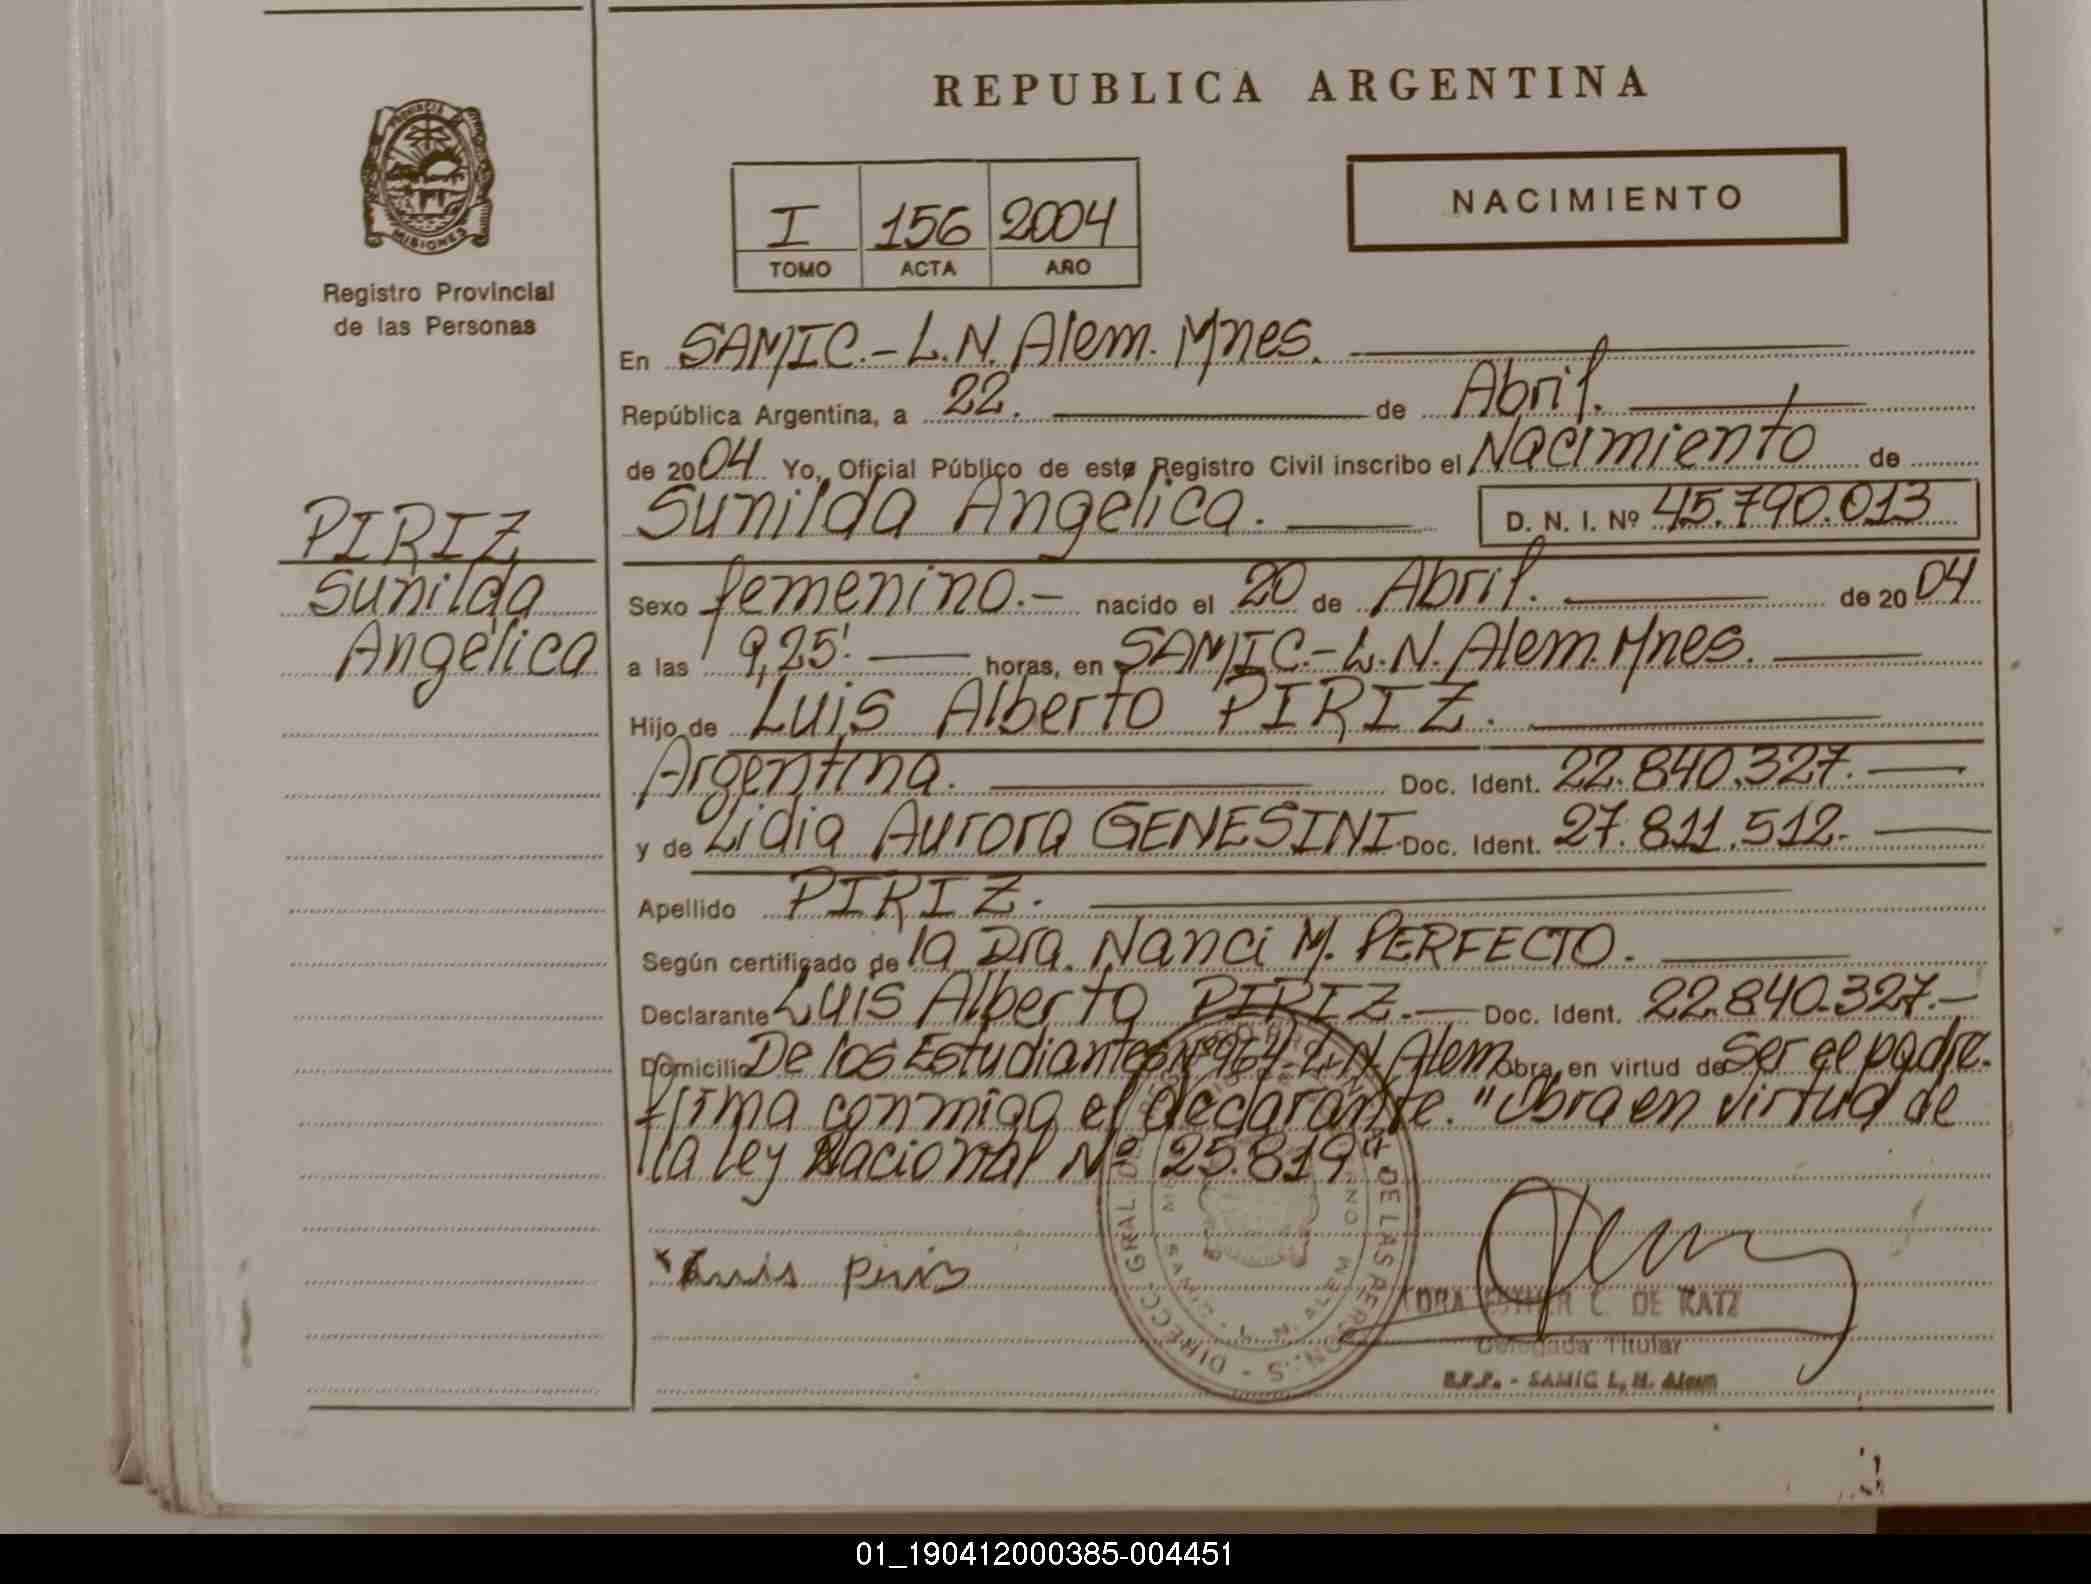 REPUBLICA ARGENTINA
PROVINCIA DE MISIONES
Registro Provincial
de las Personas
NACIMIENTO
I 156 2004
TOMO ACTA AÑO
En SAMIC.- L.N. Alem. Mnes.
República Argentina, a 22. de Abril.
de 2004 Yo, Oficial Público de este Registro Civil inscribo el Nacimiento de
Sunilda Angelica. D. N. I. Nº 45.790.013
PIRIZ
Sunilda
Angélica
Sexo femenino.- nacido el 20 de Abril. de 2004
a las 9,25' horas, en SAMIC.- L.N. Alem. Mnes.
Hijo de Luis Alberto PIRIZ.
Argentina. Doc. Ident. 22.840.327.
y de Lidia Aurora GENESINI. Doc. Ident. 27.811.512.
Apellido PIRIZ.
Según certificado de la Dra. Nanci M. PERFECTO.
Declarante Luis Alberto PIRIZ.- Doc. Ident. 22.840.327.-
Domicilio De los Estudiantes Nº 964- L.N. Alem obra en virtud de ser el padre.
firma conmigo el declarante. "Obra en virtud de
la Ley Nacional Nº 25.819"
Luis Piriz
DRA ESTHER C. DE KATZ
Delegada Titular
R.P.P. - SAMIC L. N. Alem
01_190412000385-004451